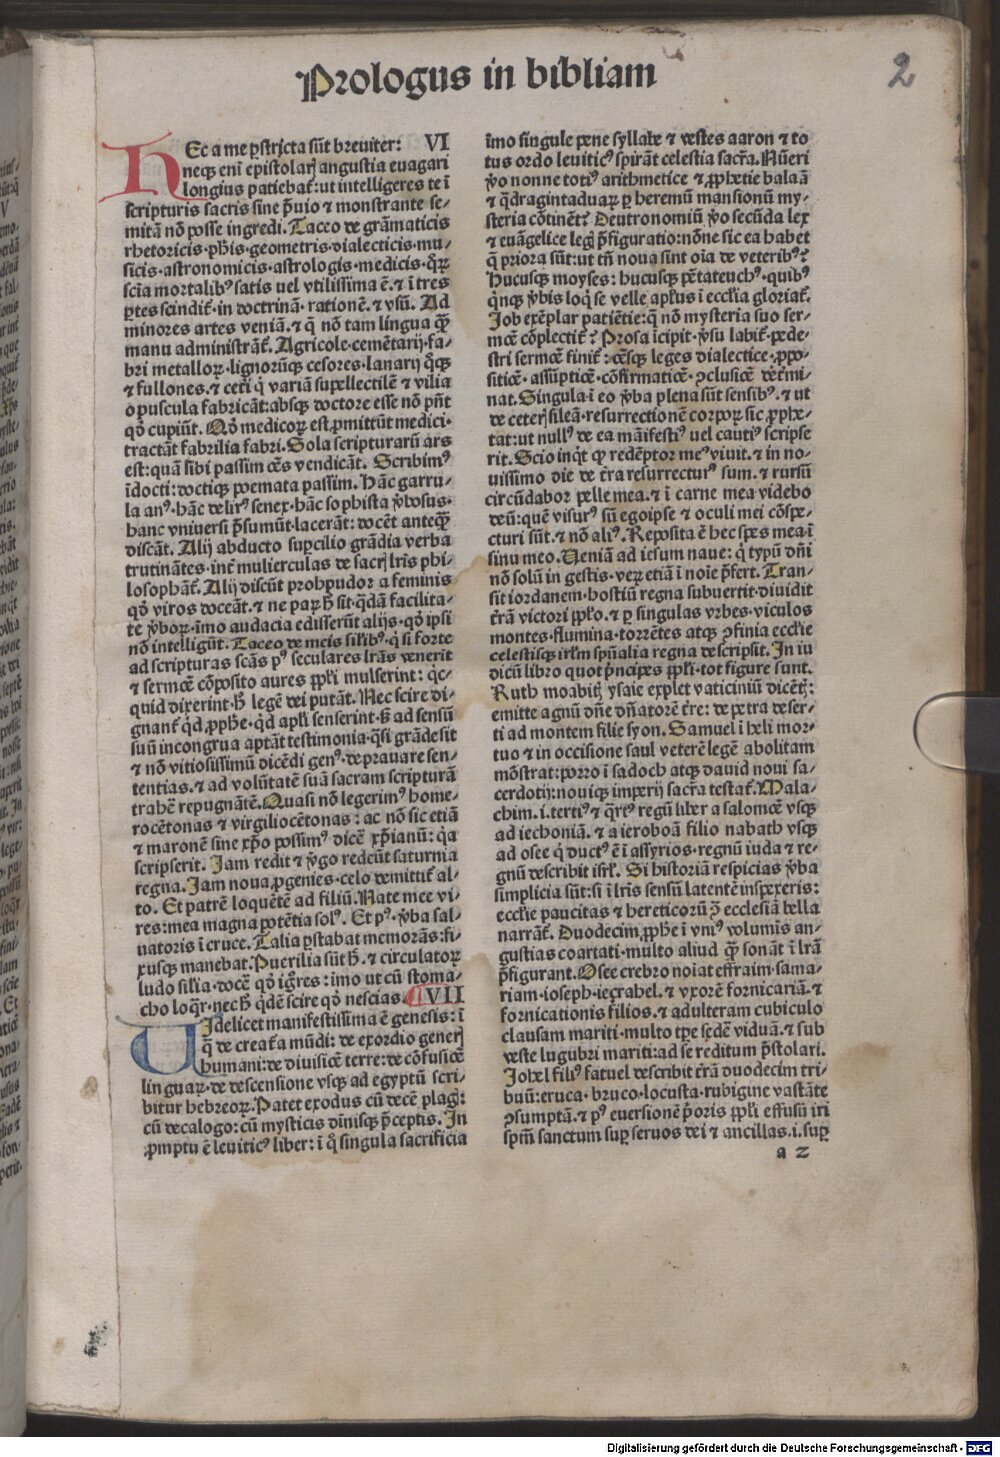 Prologus in bibliam
2
HEc a me ꝑstrꝛcta sũt breuiter: VI
neqꝫ eni epistolarꝭ angustia euagari
longius patiebatᷣ: ut intelligeres te ĩ
scripturis sacris sine p̃uio ⁊ monstrante se⸗
mitã nõ posse ingredi. Taceo de grãmaticis
rhetoricis·ph̃is·geometris·dialecticis·mu⸗
sicis·astronomicis·astrologis·medicis·q̃ꝝ
scĩa mortalibꝰ satis uel vtilissima ẽ.⁊ ĩ tres
ꝑtes scindit᷑·in doctrinã·rationẽ.⁊ vsũ. Ad
minores artes veniã.⁊ q̃ nõ tam lingua qꝫ̃
manu administrãt᷑. Agricole·cemẽtarij·fa⸗
bri metalloꝝ·lignorũqꝫ cesores·lanarij q̊qꝫ
⁊ fullones.⁊ ceteri q̃ variã supellectilẽ ⁊ vilia
opuscula fabricãt: absqꝫ doctore esse nõ pñt
qđ cupiũt. Qđ medicoꝝ est ꝓmittũt medici·
tractãt fabrilia fabri. Sola scripturarũ ars
est: quã sibi passim oẽs vendicãt. Scribimꝰ
ĩdocti: doctiqꝫ poemata passim. Hãc garru⸗
la anꝰ·hãc delirꝰ senex·hãc sophista ṽbosus·
hanc vniuersi p̃sumũt·lacerãt: docẽt anteqꝫ̃
discãt. Alij abducto suꝑcilio grãdia verba
trutinãtes·inť mulierculas de sacrꝭ lr̃is phi⸗
losophãt᷑. Alij discũt prohpudor a feminis
qđ viros doceãt.⁊ ne paꝝ h̃ sit·q̃dã facilita⸗
te ṽboꝝ·ĩmo audacia edisserũt alijs·qđ ipsi
nõ intelligũt. Taceo de meis sil̃ibꝰ·q̃ si forte
ad scripturas scãs pꝰ seculares lr̃as venerit
⁊ sermõe cõposito aures ppl̃i mulserint: qc⸗
quid dixerint·h̃ legẽ dei putãt. Nec scire di⸗
gnant᷑ qd ꝓphe·qd apl̃i senserint·s̃ ad sensũ
suũ incongrua aptãt testimonia·q̃si grãde sit
⁊ nõ vitiosissimũ dicẽdi genꝰ·deprauare sen⸗
tentias.⁊ ad volũtatẽ suã sacram scripturã
trahẽ repugnãtẽ. Quasi nõ legerimꝰ home⸗
rocẽtonas ⁊ virgiliocẽtonas: ac nõ sic etiã
⁊ maronẽ sine xp̃o possimꝰ dicẽ xp̃ianũ: qa
scripserit. Jam redit ⁊ ṽgo redeũt saturnia
regna. Jam noua ꝓgenies·celo demittit᷑ al⸗
to. Et patrẽ loquẽtẽ ad filiũ. Nate mee vi⸗
res: mea magna potẽtia solꝰ. Et pꝰ·ṽba sal⸗
uatoris ĩ cruce. Talia ꝑstabat memorãs: fi⸗
xusqꝫ manebat. Puerilia sũt h̃.⁊ circulatoꝝ
ludo sil̃ia·docẽ qđ igr̃es: imo ut cũ stoma⸗
cho loq̃r·nec h̃ qdẽ scire qđ nescias. VII
UJdelicet manifestissima ẽ genesis: ĩ
q̃ de creat᷑a mũdi: de exordio generꝭ
humani: de diuisiõe terre: de cõfusiõe
linguaꝝ·⁊ descensione vsqꝫ ad egyptũ scri⸗
bitur hebreoꝝ. Patet exodus cũ decẽ plagꝭ:
cũ decalogo: cũ mysticis diuinisqꝫ p̃ceptis. In
ꝓmptu ẽ leuiticꝰ liber: ĩ q̊ singula sacrificia
ĩmo singule pene syllabe ⁊ vestes aaron ⁊ to
tus ordo leuiticꝰ spirãt celestia sacr̃a. Nũeri
ṽo nonne totiꝰ arithmetice ⁊ ꝓphetie balaã
⁊ q̃dragintaduaꝝ ꝑ heremũ mansionũ my⸗
steria cõtinẽt? Deutronomiũ ṽo secũda lex
⁊ euãgelice legꝭ p̃figuratio: nõne sic ea habet
q̃ priora sũt: ut tñ noua sint oĩa de veteribꝰ?
Hucusqꝫ moyses: hucusqꝫ pẽtateuchꝰ·quibꝰ
q̃nqꝫ ṽbis loq̃ se velle apl̃us ĩ eccl̃ia gloriat᷑.
Job exẽplar patiẽtie: q̃ nõ mysteria suo ser⸗
mõe cõplectit᷑? Prosa ĩcipit·ṽsu labit᷑·pede⸗
stri sermõe finit᷑: oẽsqꝫ leges dialectice·ꝓpo⸗
sitiõe·assũptiõe·cõfirmatiõe·ꝯclusiõe deťmi⸗
nat. Singula ĩ eo ṽba plena sũt sensibꝰ.⁊ ut
de ceterꝭ sileã·resurrectionẽ corpoꝝ sic ꝓphe⸗
tat: ut nullꝰ de ea mãifestiꝰ uel cautiꝰ scripse
rit. Scio inqͥt ꝙ redẽptor meꝰ viuit.⁊ in no⸗
uissimo die de ťra resurrecturꝰ sum.⁊ rursũ
circũdabor pelle mea.⁊ ĩ carne mea videbo
deũ: quẽ visurꝰ sũ egoipse ⁊ oculi mei cõspe⸗
cturi sũt.⁊ nõ aliꝰ. Reposita ẽ hec spes mea ĩ
sinu meo. Veniã ad iesum naue: q̃ typũ dñi
nõ solũ in gestis·veꝝ etiã ĩ noĩe p̃fert. Tran⸗
sit iordanem·hostiũ regna subuertit·diuidit
ťrã victori ppl̃o.⁊ ꝑ singulas vrbes·viculos
montes·flumina·torrẽtes atqꝫ ꝯfinia eccl̃ie
celestisqꝫ irl̃m spũalia regna descripsit. In iu
dicũ libro quot pͥncipes ppl̃i·tot figure sunt.
Ruth moabitꝭ ysaie explet vaticiniũ dicẽtꝭ:
emitte agnũ dñe dñatorẽ ťre: de petra deser⸗
ti ad montem filie syon. Samuel ĩ heli mor⸗
tuo ⁊ in occisione saul veterẽ legẽ abolitam
mõstrat: porro ĩ sadoch atqꝫ dauid noui sa⸗
cerdotij: nouiqꝫ imperij sacr̃a testat᷑. Mala⸗
chim.i.tertiꝰ ⁊ q̃rtꝰ regũ liber a salomõe vsqꝫ
ad iechoniã.⁊ a ieroboã filio nabath vsqꝫ
ad osee q̃ ductꝰ ẽ ĩ assyrios·regnũ iuda ⁊ re⸗
gnũ describit isrl̃. Si historiã respicias ṽba
simplicia sũt: si ĩ lr̃is sensũ latentẽ inspexeris:
eccl̃ie paucitas ⁊ hereticorũ ꝯ̃ ecclesiã bella
narrãt᷑. Duodecim ꝓphe ĩ vniꝰ volumĩs an⸗
gustias coartati·multo aliud qꝫ̃ sonãt ĩ lr̃ã
p̃figurant. Osee crebro noĩat effraim·sama⸗
riam·ioseph·iezrahel.⁊ vxorẽ fornicariã.⁊
fornicationis filios.⁊ adulteram cubiculo
clausam mariti·multo tꝑe sedẽ viduã.⁊ sub
veste lugubri mariti: ad se reditum p̃stolari.
Johel filiꝰ fatuel describit ťrã duodecim tri⸗
buũ: eruca·bruco·locusta·rubigine vastãte
ꝯsumptã.⁊ pꝰ euersionẽ p̃oris ppl̃i effusũ iri
spm̃ sanctum suꝑ seruos dei ⁊ ancillas.i.suꝑ
a 2
Digitalisierung gefördert durch die Deutsche Forschungsgemeinschaft - DFG